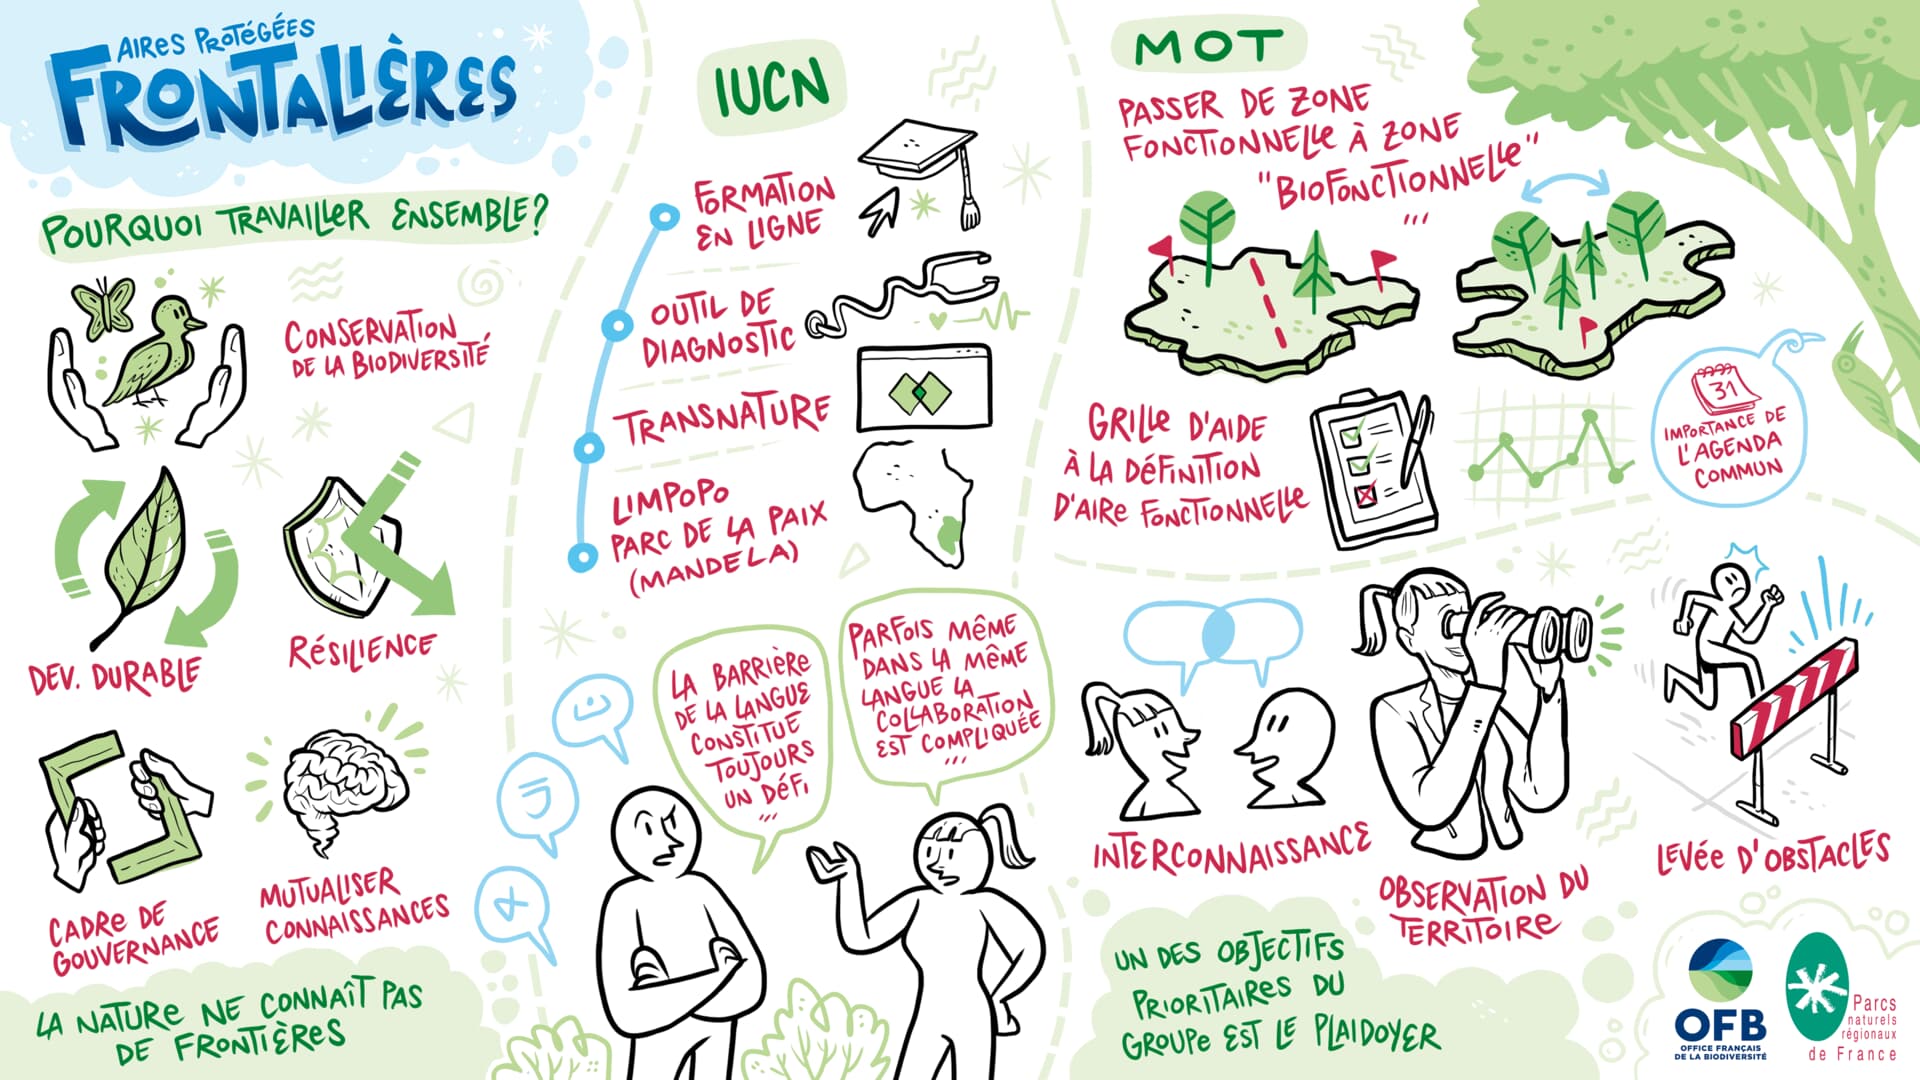 AIRES PROTÉGÉES
FRONTALIÈRES
POURQUOI TRAVAILLER ENSEMBLE?
CONSERVATION
DE LA BIODIVERSITÉ
DEV. DURABLE
RÉSILIENCE
CADRE DE
GOUVERNANCE
MUTUALISER
CONNAISSANCES
LA NATURE NE CONNAÎT PAS
DE FRONTIÈRES
IUCN
FORMATION
EN LIGNE
OUTIL DE
DIAGNOSTIC
TRANSNATURE
LIMPOPO
PARC DE LA PAIX
(MANDELA)
LA BARRIÈRE
DE LA LANGUE
CONSTITUE
TOUJOURS
UN DÉFI
...
PARFOIS MÊME
DANS LA MÊME
LANGUE LA
COLLABORATION
EST COMPLIQUÉE
...
MOT
PASSER DE ZONE
FONCTIONNELLE À ZONE
"BIOFONCTIONNELLE"
...
GRILLE D'AIDE
À LA DÉFINITION
D'AIRE FONCTIONNELLE
31
IMPORTANCE DE
L'AGENDA
COMMUN
INTERCONNAISSANCE
OBSERVATION DU
TERRITOIRE
LEVÉE D'OBSTACLES
UN DES OBJECTIFS
PRIORITAIRES DU
GROUPE EST LE PLAIDOYER
OFB
OFFICE FRANÇAIS
DE LA BIODIVERSITÉ
Parcs
naturels
régionaux
de France